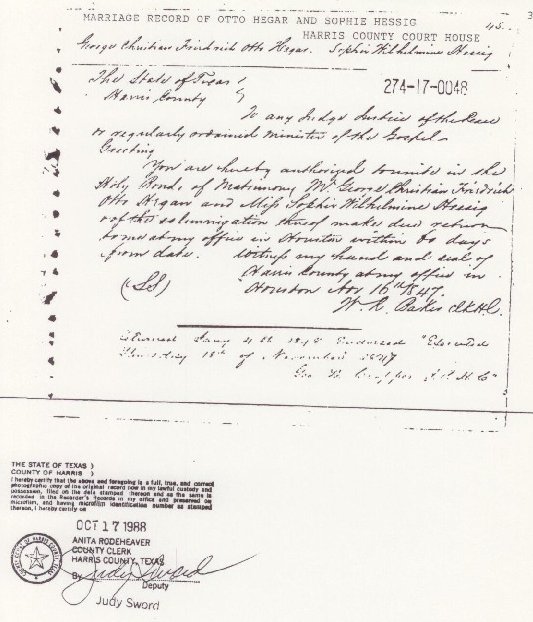 MARRIAGE RECORD OF OTTO HEGAR AND SOPHIE HESSIG
HARRIS COUNTY COURT HOUSE
45
3
George Christian Friedrich Otto Hegar. Sophie Wilhelmine Hessig
274-17-0048
The State of Texas
Harris County
To any Judge Justice of the Peace
or regularly ordained minister of the Gospel-
Greeting
You are hereby authorized to unite in the
Holy Bonds of Matrimony Mr George Christian Friedrich
Otto Hegar and Miss Sophie Wilhelmine Hessig
& of the solemnization thereof make due return
to me at my office in Houston within 60 days
from date. Witness my hand and seal of
Harris County at my office in
Houston Nov 16th 1847.
(LS)
W. R. Baker Clk HC.
Returned Jany 4th Endorsed "Executed
Thursday 18th of November 1847
Geo B J. P. H. C"
THE STATE OF TEXAS )
COUNTY OF HARRIS )
I hereby certify that the above and foregoing is a full, true, and correct
photographic copy of the original record now in my lawful custody and
possession, filed on the date stamped thereon and as the same is
recorded in the Recorder's Records in my office and preserved on
microfilm, and having microfilm identification number as stamped
thereon, I hereby certify on
OCT 17 1988
ANITA RODEHEAVER
COUNTY CLERK
HARRIS COUNTY, TEXAS
By Judy Sword
Deputy
Judy Sword